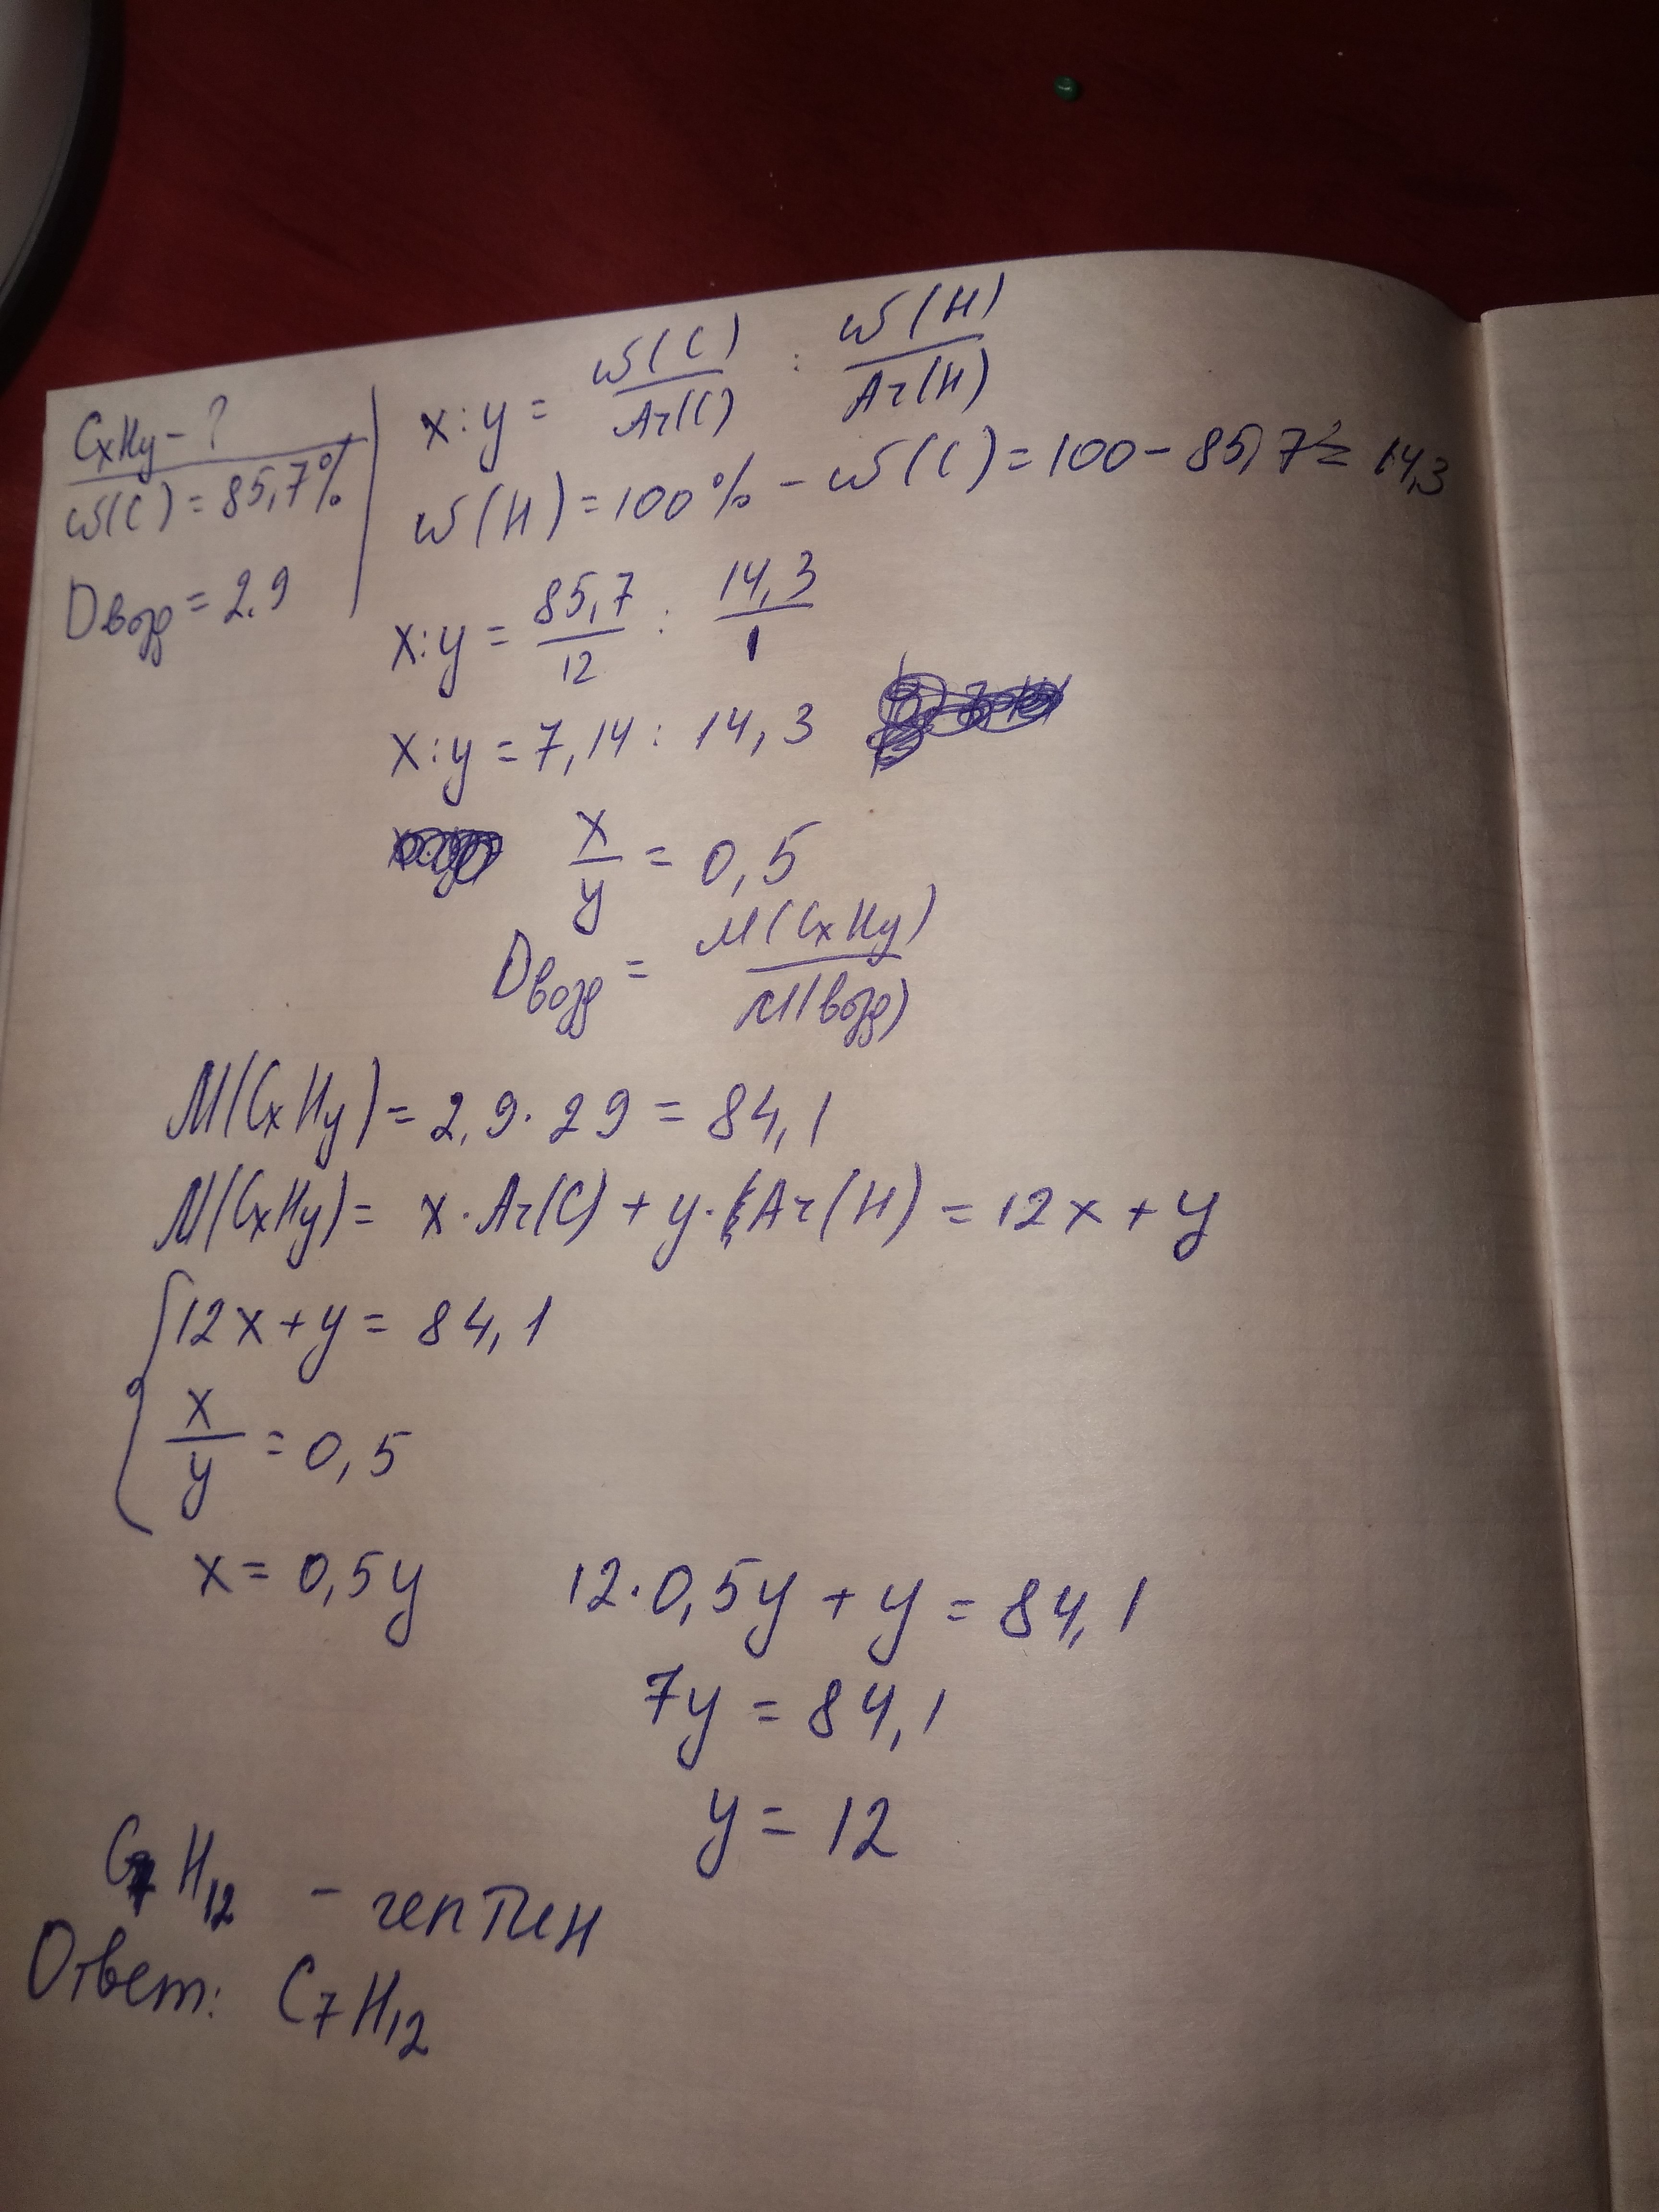 CxHy - ?
w(C) = 85,7%
Dвозд = 2.9
x:y = w(C)/Ar(C) : w(H)/Ar(H)
w(H) = 100% - w(C) = 100 - 85,7 = 14,3
x:y = 85,7/12 : 14,3/1
x:y = 7,14 : 14,3
x/y = 0,5
Dвозд = M(CxHy)/M(возд)
M(CxHy) = 2,9 · 29 = 84,1
M(CxHy) = x · Ar(C) + y · Ar(H) = 12x + y
12x + y = 84,1
x/y = 0,5
x = 0,5y 12·0,5y + y = 84,1
7y = 84,1
y = 12
C7H12 - гептин
Ответ: C7H12